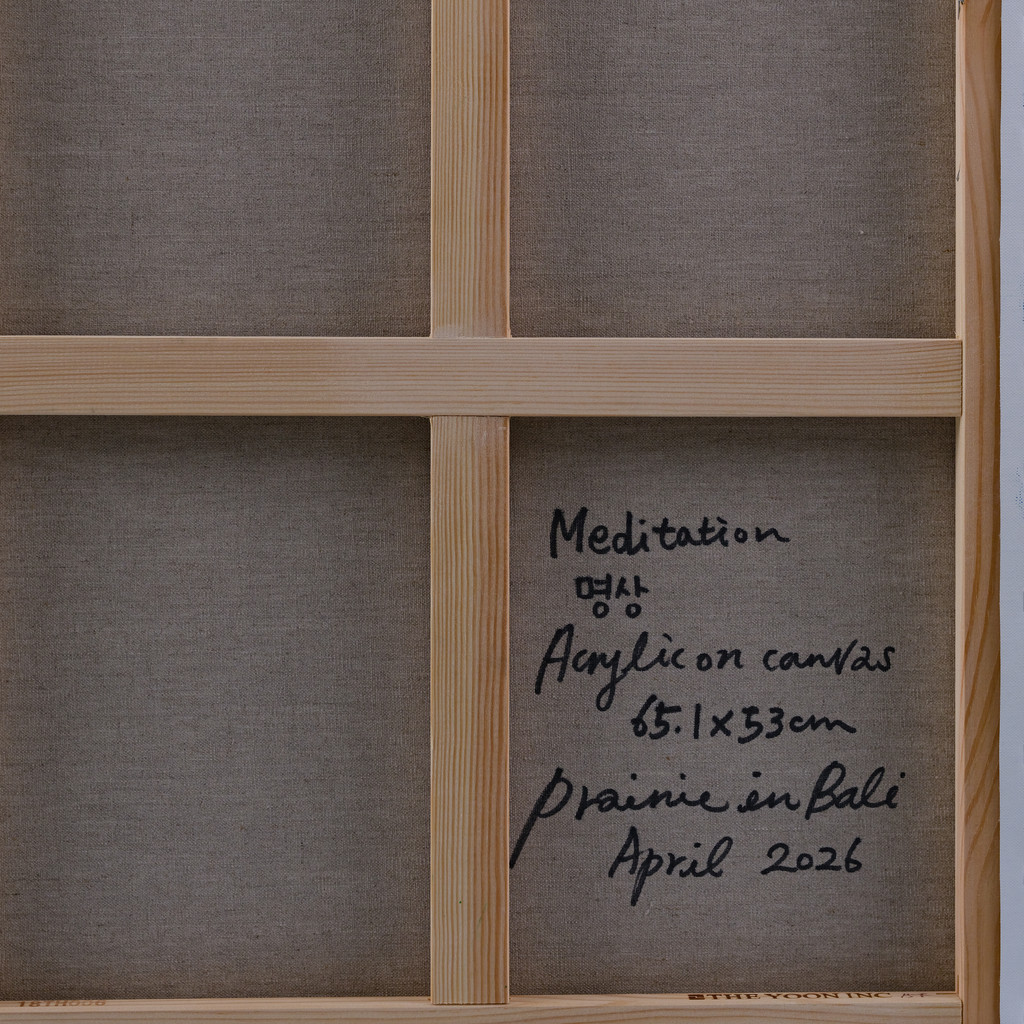 Meditation
명상
Acrylic on canvas
65.1x53cm
prairie in Bali
April 2026
THE YOON INC